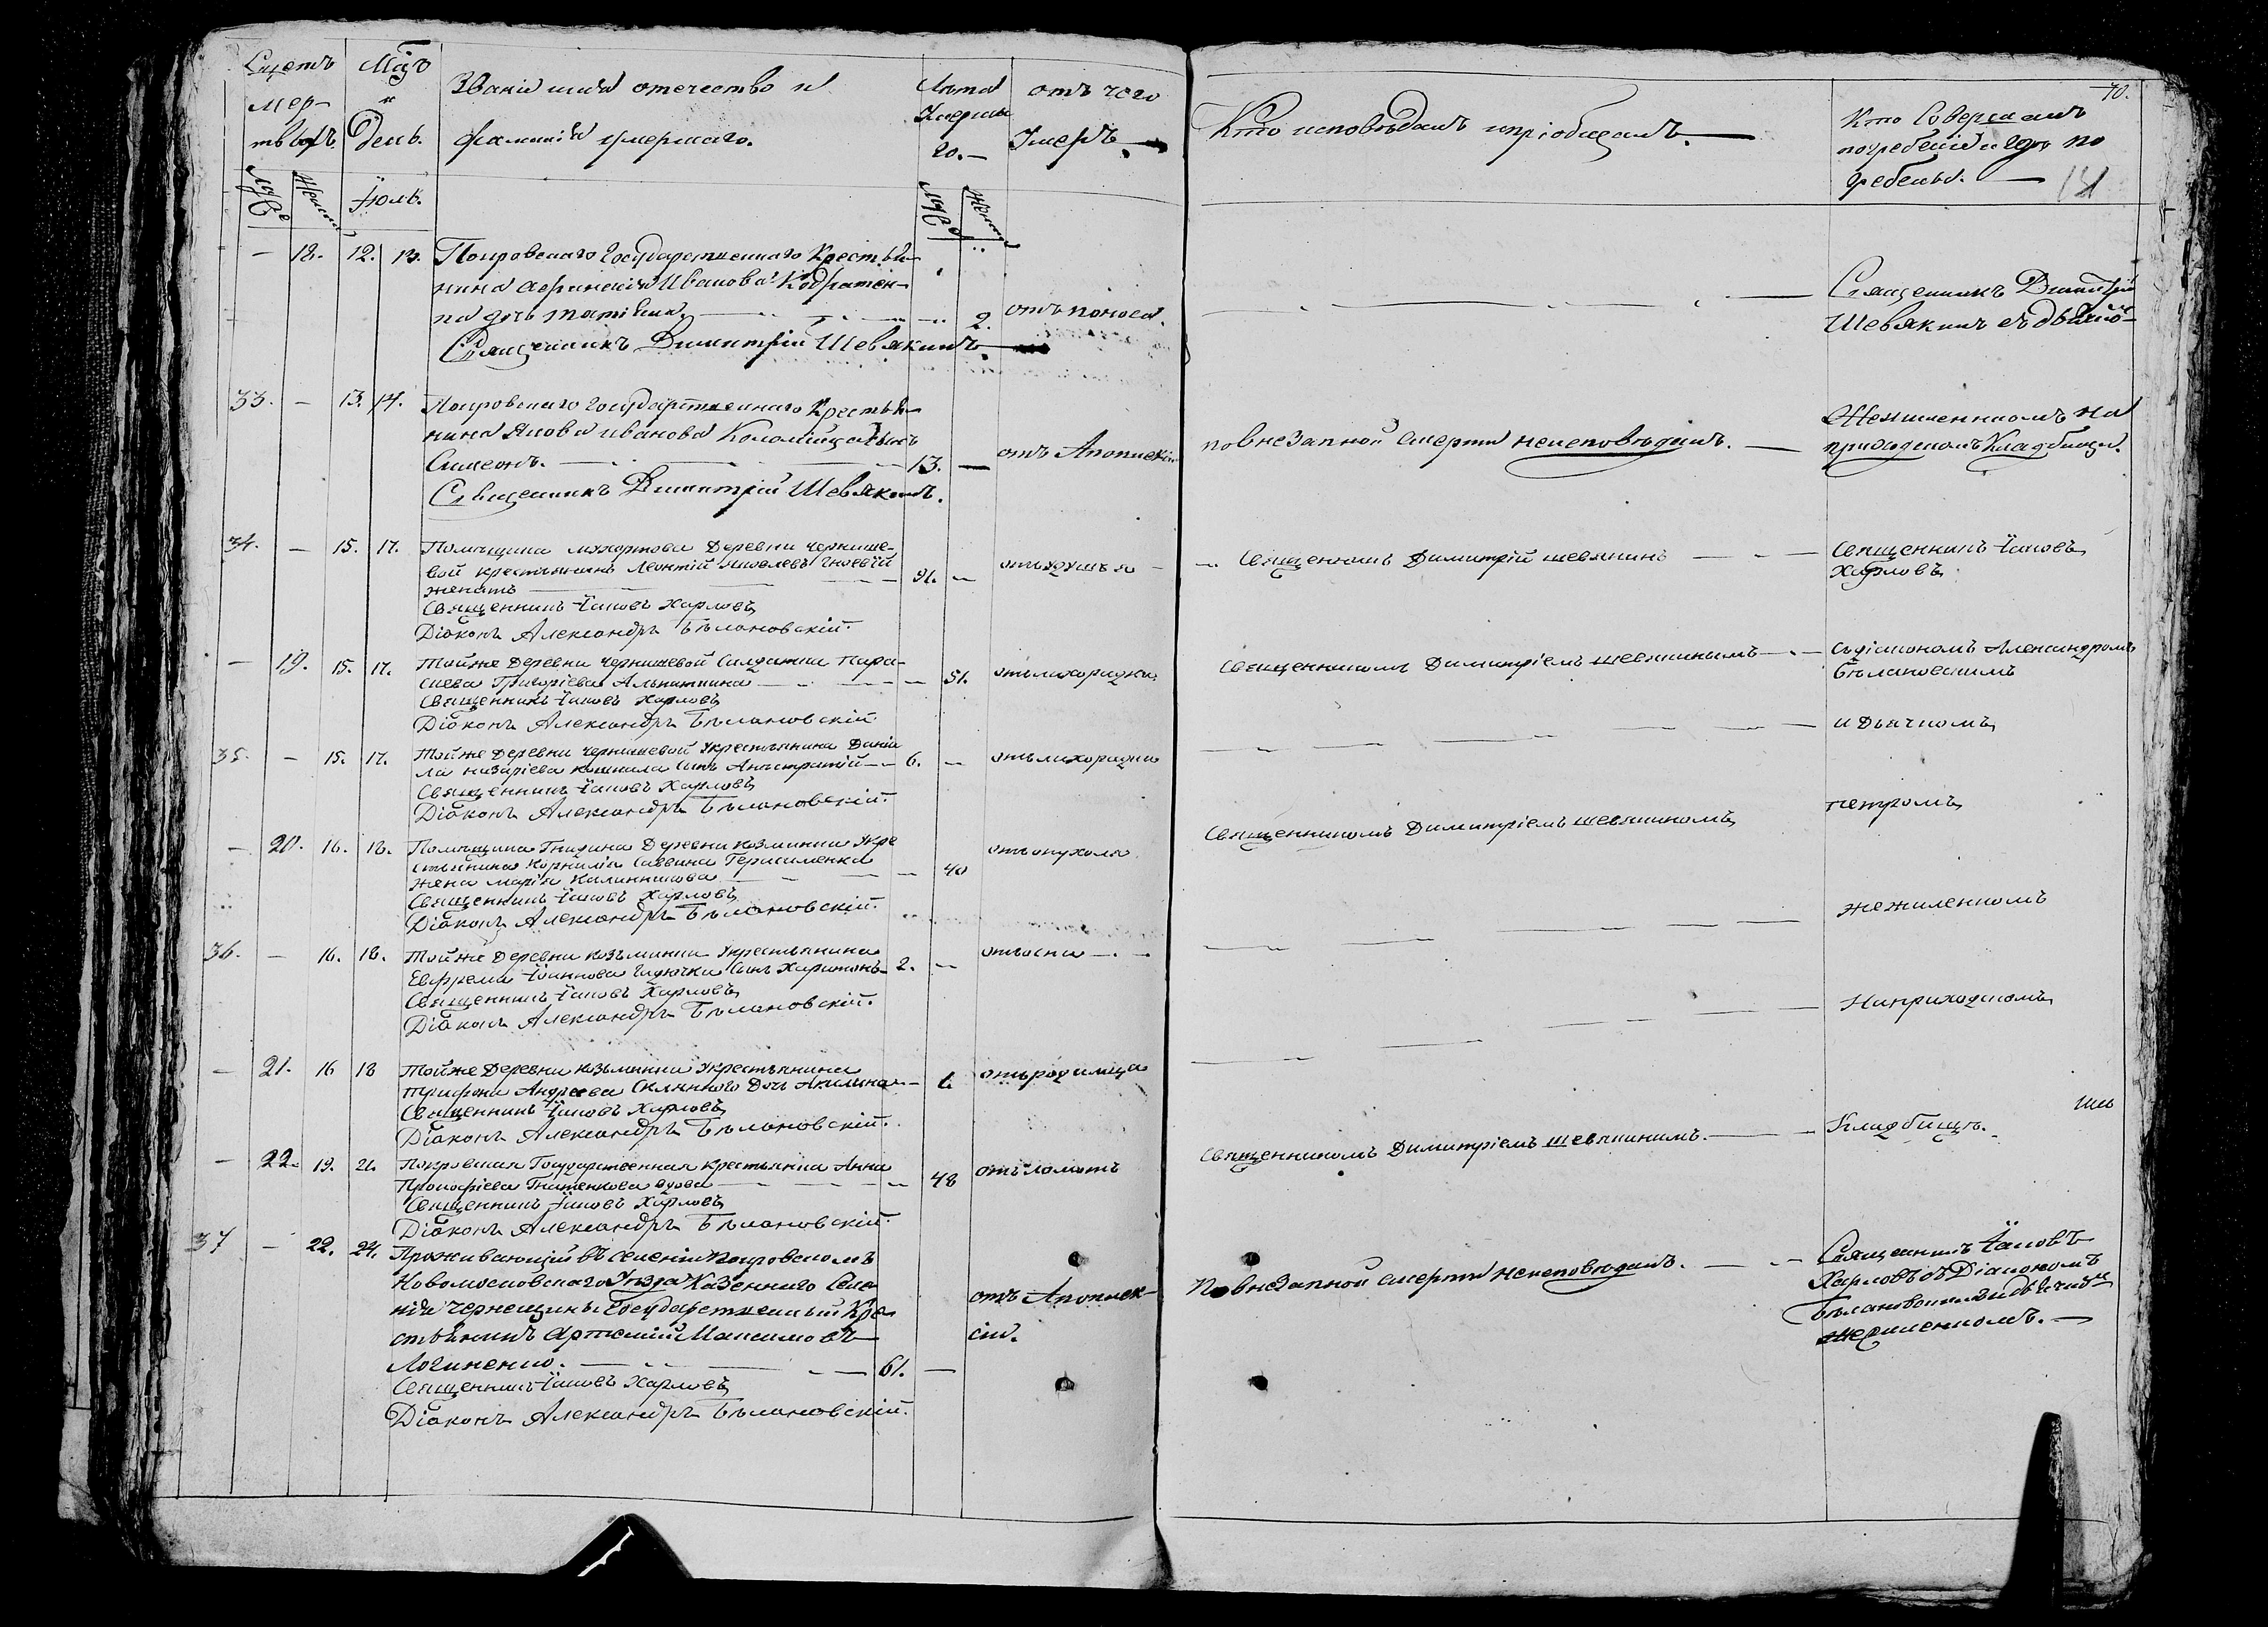 Счетъ
мер-
твыхъ.
Мцъ
и
День.
Званіе имя отечество и
фамилія умершаго.
Лѣта
Умерша
го.—
отъ чего
Умеръ
Кто исповѣдалъ и пріобщалъ.
70.
Кто Совершалъ
погребеніе и где по
гребены.
Муже
Женск
Іюль.
Муже
Женск
— 18. 12. 13. Покровскаго Государственнаго Крестья-
нина Иванова
на дочь Татіяна. 2. отъ поноса.
Священникъ Димитрій Шевякинъ.
Священникъ Димитрій
Шевякинъ
33. — 13. 14. Покровскаго Государственнаго Крестья-
нина Якова Иванова Коломійца сынъ
Симеонъ. 13. — отъ Апоплексіи
по внезапной смерти неисповѣданъ.
на
приходскомъ Кладбищѣ.
Священникъ Димитрій Шевякинъ.
34. — 15. 17. Помѣщика Деревни Черныше-
вой крестьянинъ Леонтій Яковлевъ
женатъ 91. — отъ удушья
Священникъ Димитрій Шевякинъ
Священникъ Іаковъ
Харловъ
Священникъ Іаковъ Харловъ
Діаконъ Александръ Бѣлановскій.
— 19. 15. 17. Тойже Деревни Чернышевой Салдатка Пара-
скева Григоріева 51. отъ лихорадки
Священникомъ Димитріемъ Шевякинымъ
съ діакономъ Александромъ
Бѣлановскимъ
Священникъ Іаковъ Харловъ
Діаконъ Александръ Бѣлановскій.
и Дьячкомъ
35. — 15. 17. Тойже Деревни Чернышевой Укрестьянина Даніи
ла Назаріева Сынъ 6. — отъ лихорадки
Священникъ Іаковъ Харловъ
Діаконъ Александръ Бѣлановскій.
петромъ
— 20. 16. 18. Помѣщика Гнидина Деревни Козминки Укре
стьянина Корнилія Саввина Герасименка
жена Марія Калинникова 40 отъ опухоли
Священникомъ Димитріемъ Шевякиномъ
Священникъ Іаковъ Харловъ
Діаконъ Александръ Бѣлановскій.
36. — 16. 18. Тойже Деревни Козьминки Укрестьянина
Евфрема Іоаннова Сынъ Харитонъ 2. — отъ оспы
Священникъ Іаковъ Харловъ
Діаконъ Александръ Бѣлановскій.
На приходскомъ
— 21. 16 18 Тойже Деревни Козьминки Укрестьянина
Трифона Андреева Дочь Акилина отъ родимца
Священникъ Іаковъ Харловъ
Діаконъ Александръ Бѣлановскій.
Кладбищѣ.
— 22. 19. 21. Покровская Государственная крестьянка Анна
Прокофіева Гнатенкова вдова 48 отъ ломоты
Священникомъ Димитріемъ Шевякинимъ.
Священникъ Іаковъ Харловъ
Діаконъ Александръ Бѣлановскій.
37 — 22. 24. Проживающій въ селеніи Покровскомъ
Новомосковскаго Уѣзда Казеннаго Селе
нія Чернещины Государственный Кре
стьянинъ Артемій Максимовъ
Логиненко. 61. —
отъ Апоплек-
сіи.
По внезапной смерти неисповѣданъ.
Священникъ Іаковъ
Харловъ съ Діакономъ
Бѣлановскимъ
Священникъ Іаковъ Харловъ
Діаконъ Александръ Бѣлановскій.